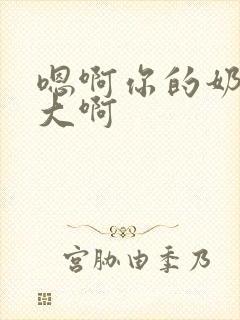 嗯啊你的奶
大啊
宫胁由季乃